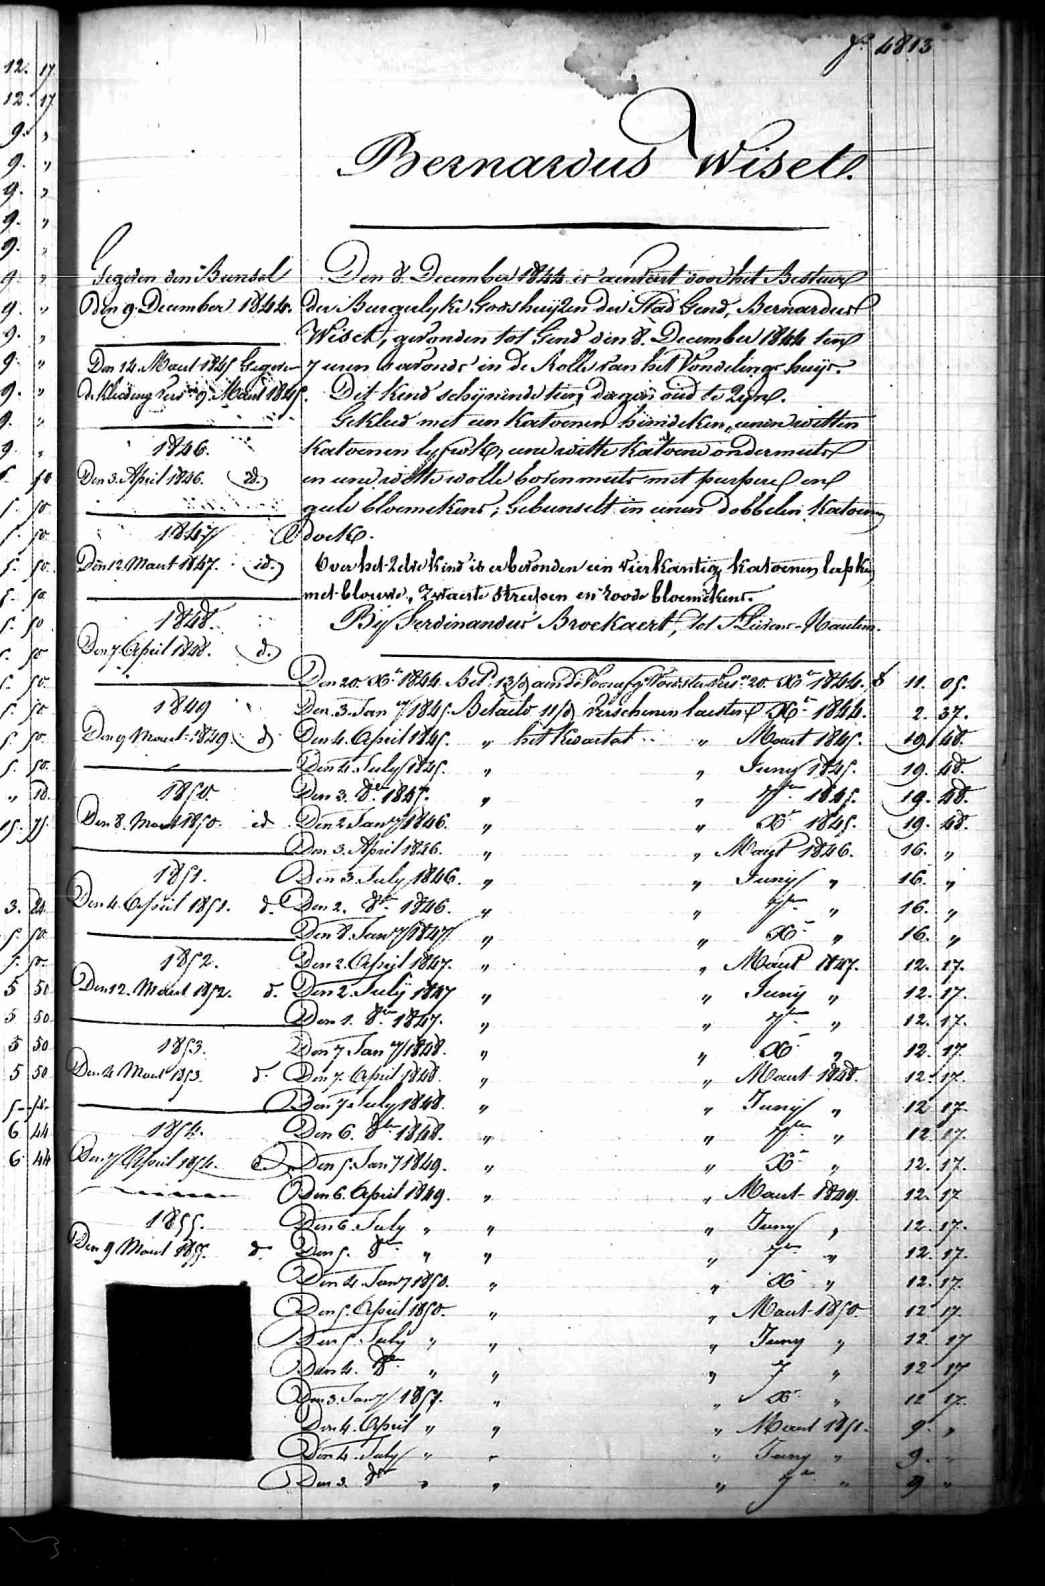 fo 4813
Bernardus Wisele.
Gegeven den Bunsel
Den 9 December 1844.
Den 14 Maart 1845 Gegeven
de kleding vers. 9 Maart 1845.
1846.
Den 3. April 1846. id.
1847
Den 12 Maart 1847. id.
1848.
Den 7 April 1848. d.
1849
Den 9 Maart 1849. d
1850
Den 8. Maart 1850. id
1851.
Den 4. April 1851. d.
1852.
Den 12. Maart 1852. d.
1853.
Den 4 Maart 1853. d.
1854.
Den 7 April 1854.
1855.
Den 9 Maart 1855. d.
Den 8 December 1844 is aenveert door het Bestuur
der Burgerlyke Godshuijzen der Stad Gend, Bernardus
Wisele, gevonden tot Gend den 8. December 1844 ten
7 uren s'avonds in de Rolle van het Vondelinge huijs.
Dit kind schijnende tien dagen oud te Zijn.
Gekleed met een katoenen hemdeken, eenen witten
katoenen lyfrok, eene witte katoene ondermuts
en eene witte wolle bovenmuts met purpere en
geele bloemekens; Gebunselt in eenen dobbelen katoenen
doek.
Over het Zelve kind is er bevonden een vierkantig katoenen lapken
met blauwe, zwarte streepen en roode bloemekens.
By Ferdinandus Broekaert, tot St Lievens-Hautem.
Den 20. Xr 1844 Bet. 13/ aen de Voorsz. Voedster vers. 20. Xr 1844. f 11. 05.
Den 3. Jany 1845. Betaelt 11/ verschenen laesten Xr 1844. 2. 37.
Den 4. April 1845. " het kwartael " Maart 1845. 19. 48.
Den 4. July 1845. " " Juny 1845. 19. 48.
Den 3. 8er 1845. " " 7ber 1845. 19. 48.
Den 2 Jany 1846. " " Xr 1845. 19. 48.
Den 3. April 1846. " " Maart 1846. 16. "
Den 3. July 1846. " " Juny " 16. "
Den 2. 8er 1846. " " 7ber " 16. "
Den 8. Jany 1847 " " Xr " 16. "
Den 2. April 1847. " " Maart 1847. 12. 17.
Den 2. July 1847 " " Juny " 12. 17.
Den 1. 8er 1847. " " 7ber " 12. 17.
Den 7 Jany 1848. " " Xr " 12. 17
Den 7. April 1848. " " Maart 1848. 12. 17.
Den 7 July 1848. " " Juny " 12 17.
Den 6. 8er 1848. " " 7ber " 12. 17.
Den 5. Jany 1849. " " Xr " 12. 17.
Den 6. April 1849. " " Maart 1849. 12. 17
Den 6. July " " " Juny " 12. 17.
Den 5. 8er " " " 7ber " 12. 17.
Den 4 Jany 1850. " " Xr " 12. 17.
Den 5. April 1850. " " Maart 1850. 12 17.
Den 5. July " " " Juny " 12. 17
Den 4. 8er " " " 7 " 12 17
Den 3. Jany 1851. " " Xr " 12 17.
Den 4. April " " " Maart 1851. 9. "
Den 4. July " " " Juny " 9. "
Den 3. 8er " " " 7er " 9 "